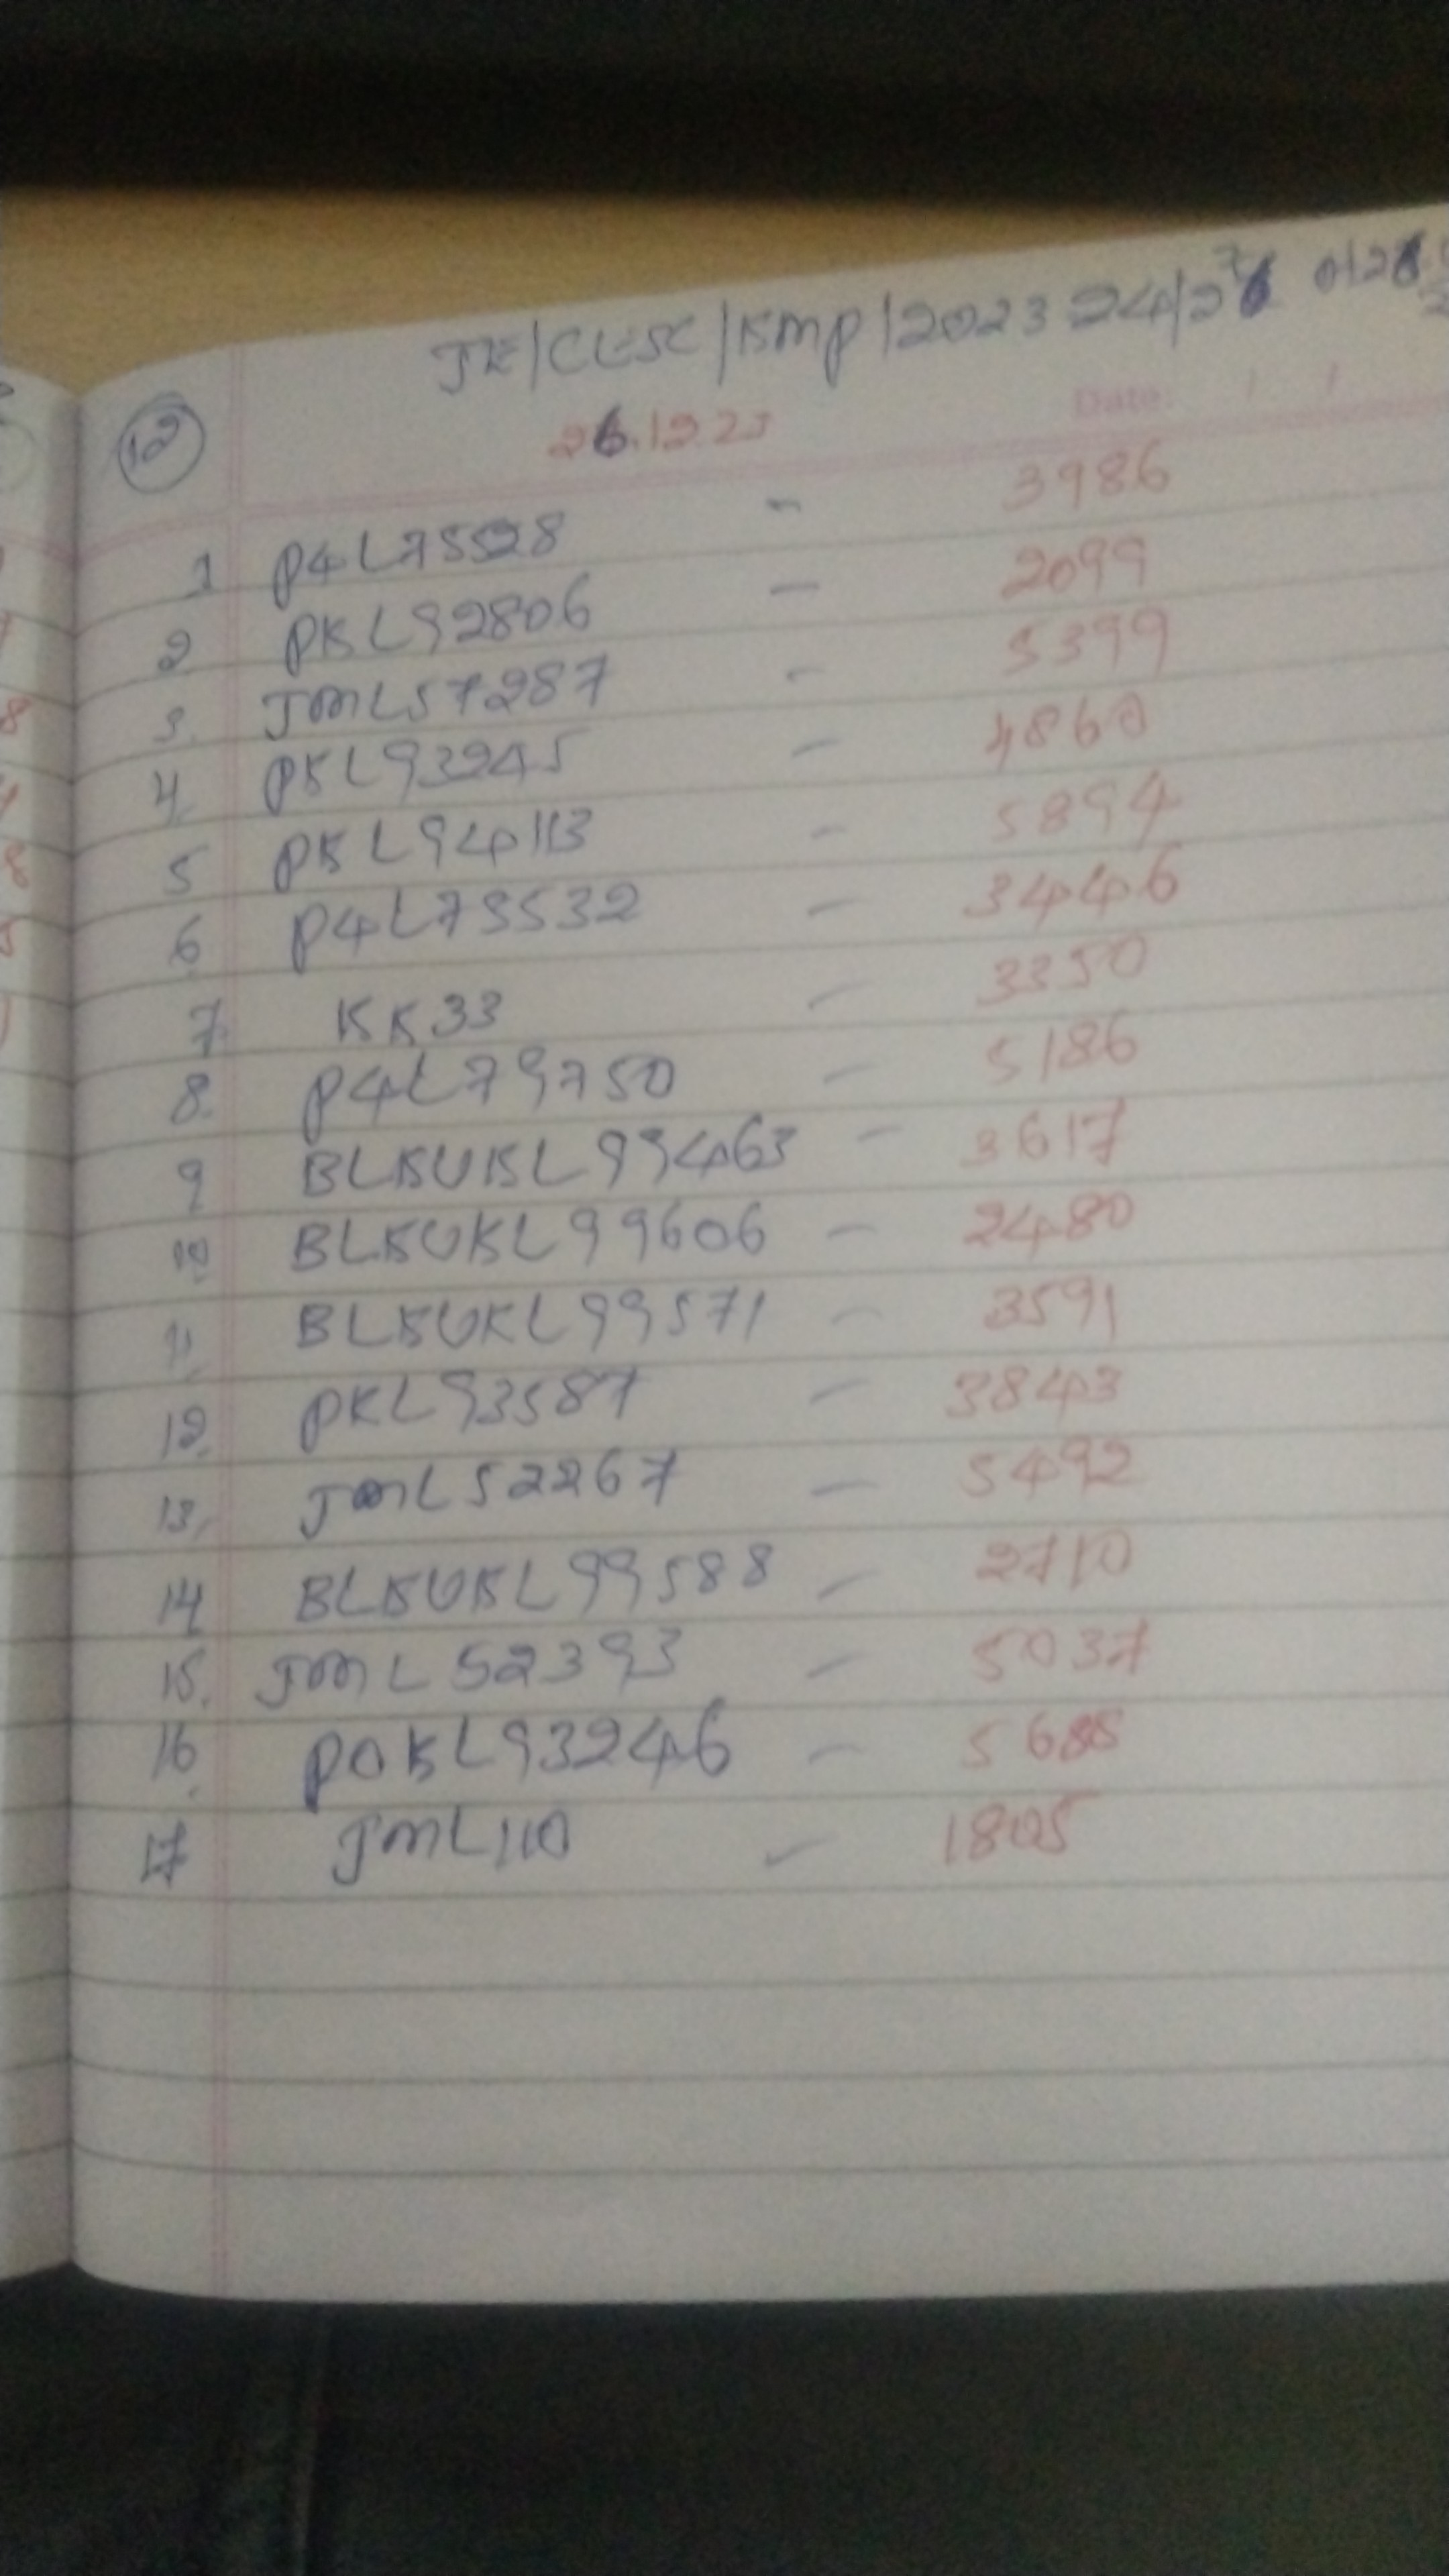 JE/CLSC/KMP/2023 24/27
12
26.12.23
Date: / /
1 P4L75528 - 3986
2 PKL92806 - 2099
3. JML57287 - 5399
4. PKL93245 - 4860
5 PKL94113 - 5894
6 P4L75532 - 3446
7. KK33 - 3350
8. P4L79750 - 5186
9 BLKUKL99463 - 3617
10 BLKUKL99606 - 2480
11. BLKUKL99571 - 3591
12. PKL93587 - 3843
13. JML52267 - 5492
14 BLKUKL99588 - 2710
15. JML52393 - 5037
16. POKL93246 - 5685
17 JML110 - 1805